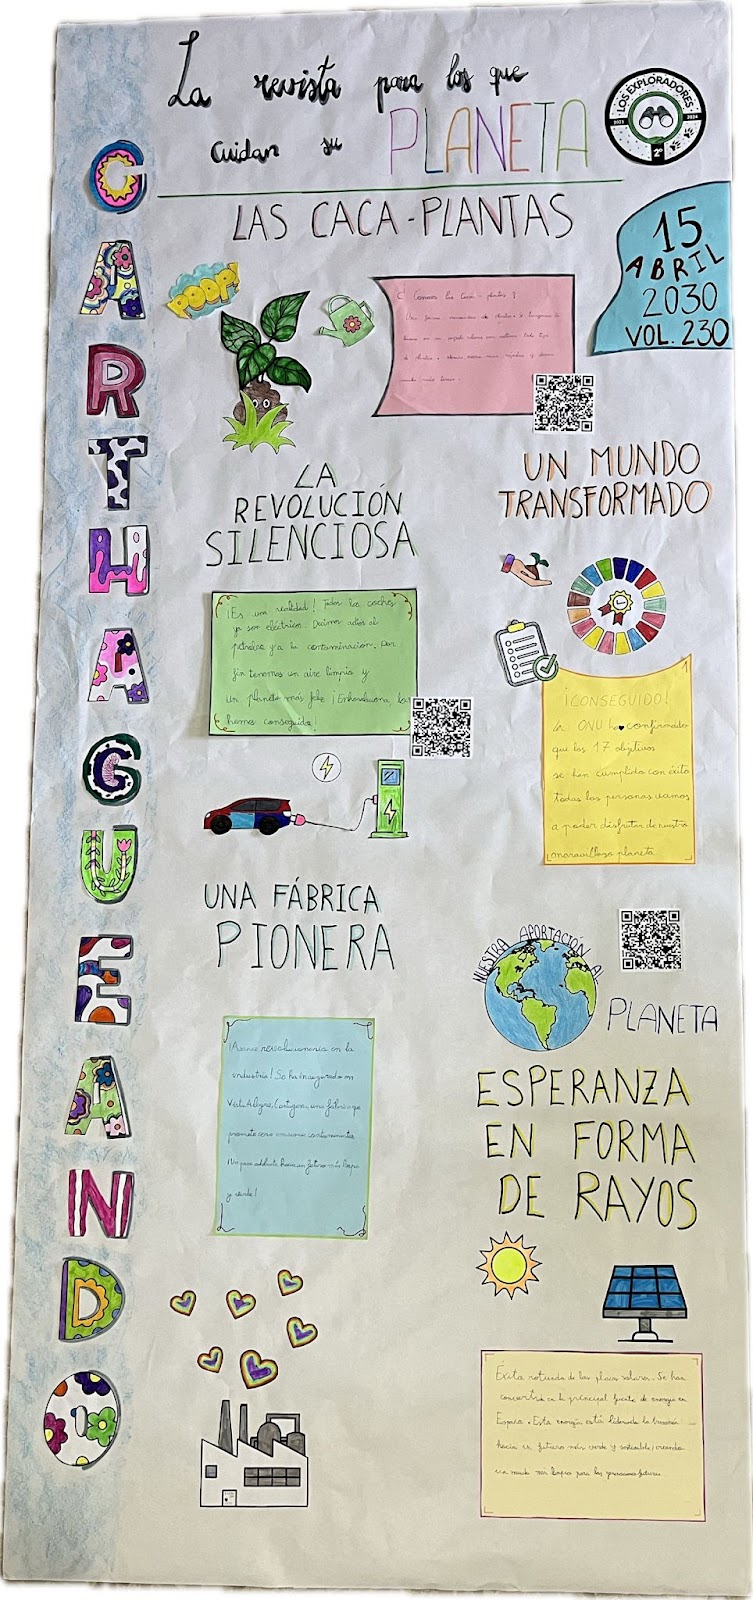 La revista para los que
cuidan su PLANETA
LOS EXPLORADORES
2023 2024
2º
CARTHAGUEANDO
15
ABRIL
2030
VOL. 230
LAS CACA-PLANTAS
POOP!
¿Conoces las Caca-plantas?
LA
REVOLUCIÓN
SILENCIOSA
¡Es una realidad! Todos los coches
ya son eléctricos. Decimos adiós al
petróleo y a la contaminación. Por
fin tenemos un aire limpio y
un planeta más feliz ¡Enhorabuena, lo
hemos conseguido!
UN MUNDO
TRANSFORMADO
¡CONSEGUIDO!
La ONU ha confirmado
que los 17 objetivos
se han cumplido con éxito
todas las personas vamos
a poder disfrutar de nuestro
maravilloso planeta.
UNA FÁBRICA
PIONERA
¡Avance revolucionario en la
industria! Se ha inaugurado en
Vista Alegre, Cartagena, una fábrica que
promete cero emisiones contaminantes.
¡Un paso adelante hacia un futuro más limpio
y verde!
NUESTRA APORTACIÓN AL
PLANETA
ESPERANZA
EN FORMA
DE RAYOS
Éxito rotundo de las placas solares. Se han
convertido en la principal fuente de energía en
España. Esta energía está liderando la transición
hacia un futuro más verde y sostenible, creando
un mundo más limpio para las generaciones futuras.